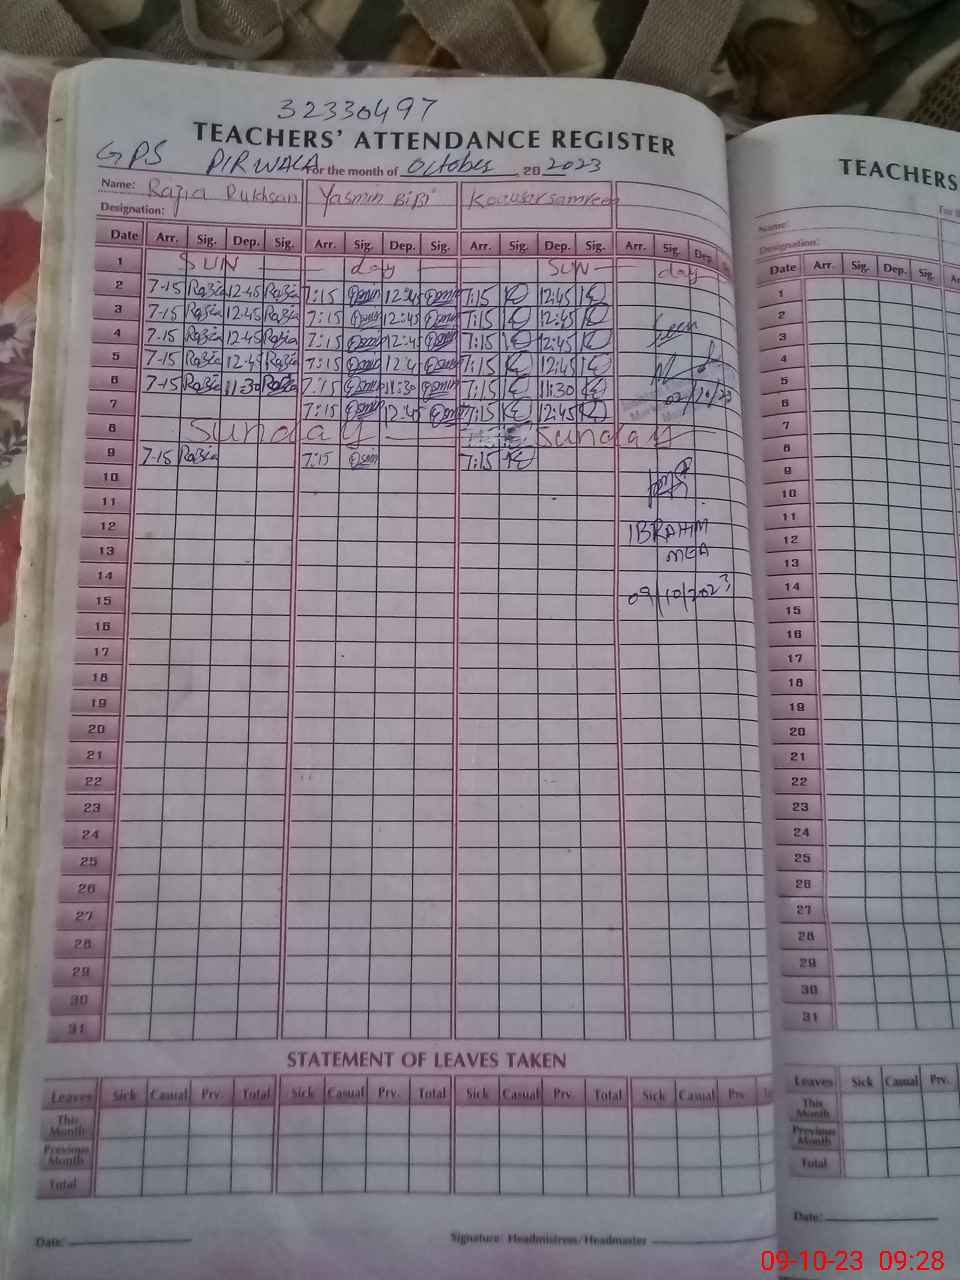 32330497
TEACHERS' ATTENDANCE REGISTER
GPS PIRWALA For the month of October 20 2023
Name: Razia Rukhsan Yasmin BiBi Kousar samreen
Designation:
Date Arr. Sig. Dep. Sig. Arr. Sig. Dep. Sig. Arr. Sig. Dep. Sig. Arr. Sig. Dep.
1 SUN day SUN day
2 7-15 Razia 12-45 Razia 7:15 12:45 7:15 12:45
3 7-15 Razia 12-45 Razia 7:15 12:45 7:15 12:45
4 7-15 Razia 12-45 Razia 7:15 12:45 7:15 12:45 Seen
5 7-15 Razia 12-4 Razia 7:15 12:4 7:15 12:45
6 7-15 Razia 11-30 Razia 7:15 11:30 7:15 11:30 02/10/23
7 7:15 12:45 7:15 12:45
8 Sunday Sunday
9 7-15 Razia 7:15 7:15
10
11
12 IBRAHIM
13 MEA
14
15 09/10/2023
16
17
18
19
20
21
22
23
24
25
26
27
28
29
30
31
STATEMENT OF LEAVES TAKEN
Leaves Sick Casual Prv. Total Sick Casual Prv. Total Sick Casual Prv. Total Sick Casual Prv.
This Month
Previous Month
Total
Date: Signature: Headmistress/Headmaster
TEACHERS
Name:
Designation:
Date Arr. Sig. Dep. Sig.
1
2
3
4
5
6
7
8
9
10
11
12
13
14
15
16
17
18
19
20
21
22
23
24
25
26
27
28
29
30
31
Leaves Sick Casual Prv.
This Month
Previous Month
Total
Date:
09-10-23 09:28